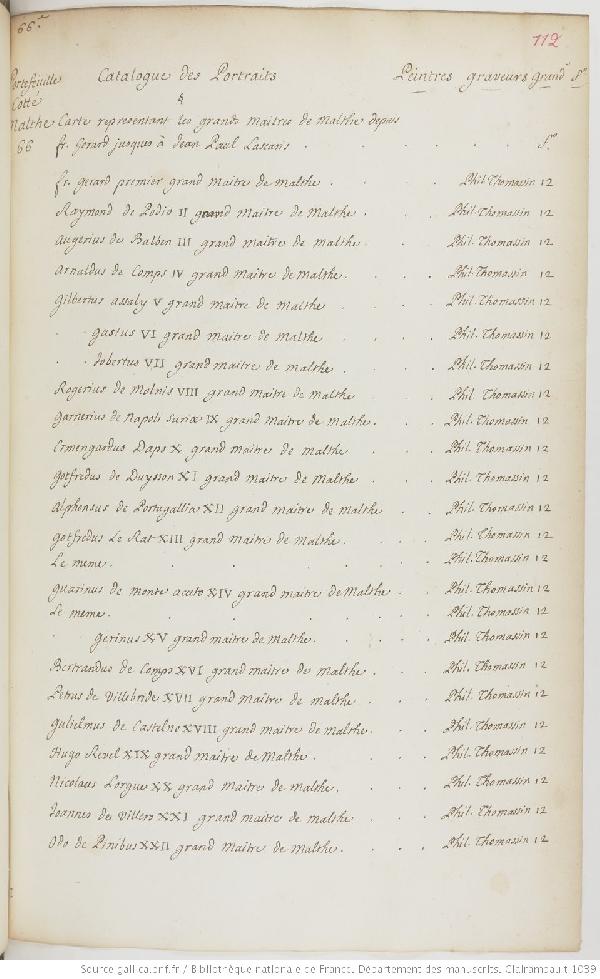 66.e
112
Portefeuille
Cotté
Malthe
66
Catalogue des Portraits Peintres graveurs grandr fo
§
Carte representant les grands maitres de malthe depuis
fr. Gerard jusques à Jean Paul Lascaris . . . . . fo
fr. gerard premier grand maitre de malthe . . . Phil. Thomassin 12
Raymond de Podio II grand maitre de malthe . . . Phil. Thomassin 12
Augerius de Balben III grand maitre de malthe . . Phil. Thomassin 12
Arnaldus de Comps IV grand maitre de malthe . . . Phil. Thomassin 12
Gilbertus assaly V grand maitre de malthe . . . Phil. Thomassin 12
. . gastus VI grand maitre de malthe . . . Phil. Thomassin 12
. . Jobertus VII grand maitre de malthe . . . Phil. Thomassin 12
Rogerius de Molnis VIII grand maitre de malthe . . Phil. Thomassin 12
Garnerius de Napoli Suriæ IX grand maitre de malthe . . . Phil. Thomassin 12
Ermengardus Daps X grand maitre de malthe . . Phil. Thomassin 12
Gotfredus de Duysson XI grand maitre de malthe . . Phil. Thomassin 12
Alphonsus de Portugallia XII grand maitre de malthe . . Phil. Thomassin 12
Gotfredus Le Rat XIII grand maitre de malthe . . . Phil. Thomassin 12
Le meme . . . . . . . Phil. Thomassin 12
Guarinus de monte acuto XIV grand maitre de Malthe . . Phil. Thomassin 12
Le meme . . . . . . . Phil. Thomassin 12
. gerinus XV grand maitre de malthe . . . . Phil. Thomassin 12
Bertrandus de Comps XVI grand maitre de malthe . . . Phil. Thomassin 12
Petrus de Villebride XVII grand maitre de malthe . . . Phil. Thomassin 12
Gulielmus de Castelno XVIII grand maitre de malthe . . . Phil. Thomassin 12
Hugo Revel XIX grand maitre de Malthe . . . . Phil. Thomassin 12
Nicolaus Lorgue XX grand maitre de malthe . . . Phil. Thomassin 12
Joannes de Villers XXI grand maitre de malthe . . . Phil. Thomassin 12
Odo de Pinibus XXII grand Maitre de malthe . . . Phil. Thomassin 12
Source gallica.bnf.fr / Bibliothèque nationale de France. Département des manuscrits. Clairambault 1039